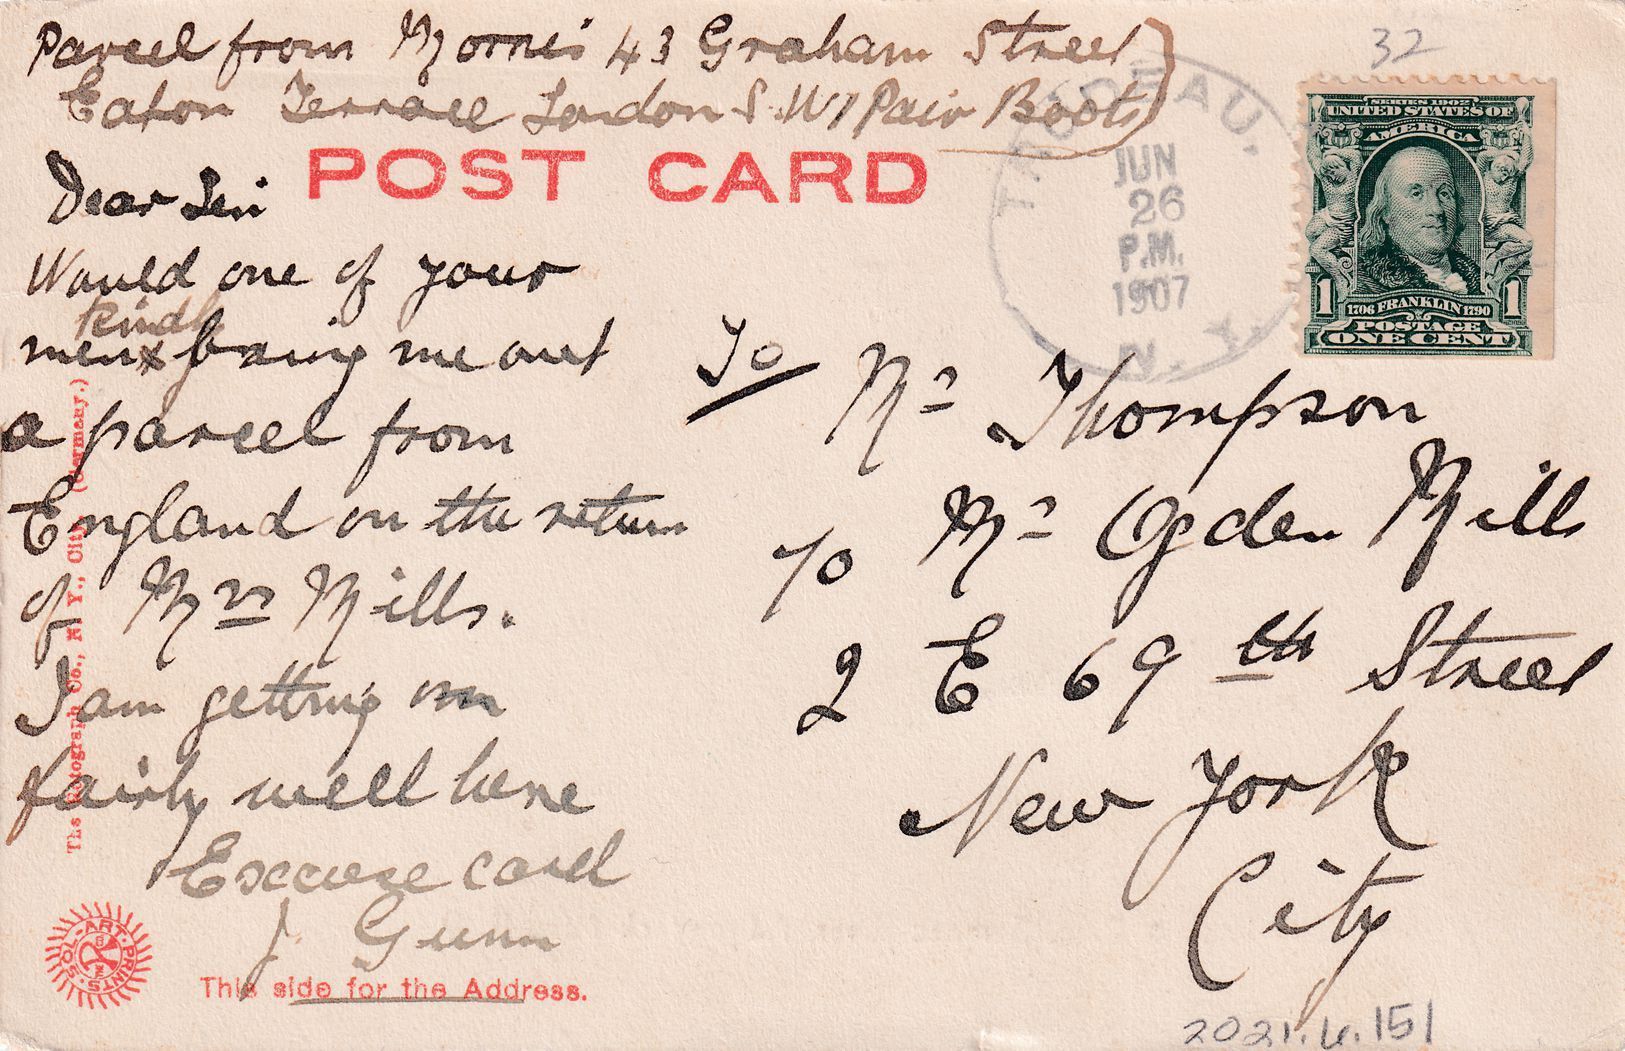 Parcel from Morris 43 Graham Street
Eaton Terrace London S.W 1 Pair Boots
32
TRUDEAU.
JUN
26
P.M.
1907
N.Y.
SERIES 1902
UNITED STATES OF
AMERICA
1 1706 FRANKLIN 1790 1
POSTAGE
ONE CENT
POST CARD
Dear Sir
Would one of your
kindly
men x bring me out
a parcel from
England on the return
of Mrs Mills.
I am getting on
fairly well here
Excuse card
J. Gunn
To Mr Thompson
c/o Mr Ogden Mills
2 E 69th Street
New York
City
The Rotograph Co., N.Y., City. (Germany.)
SOL-ART-PRINTS
This side for the Address.
2021.4.151